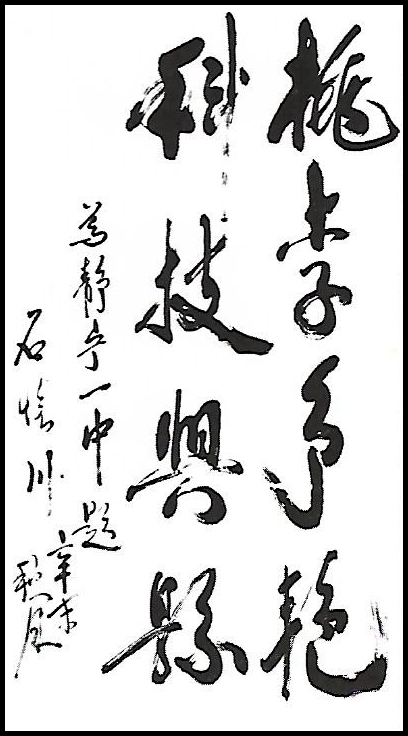 桃李争艳
科技興縣
为静宁一中题
辛未秋月
石怀川